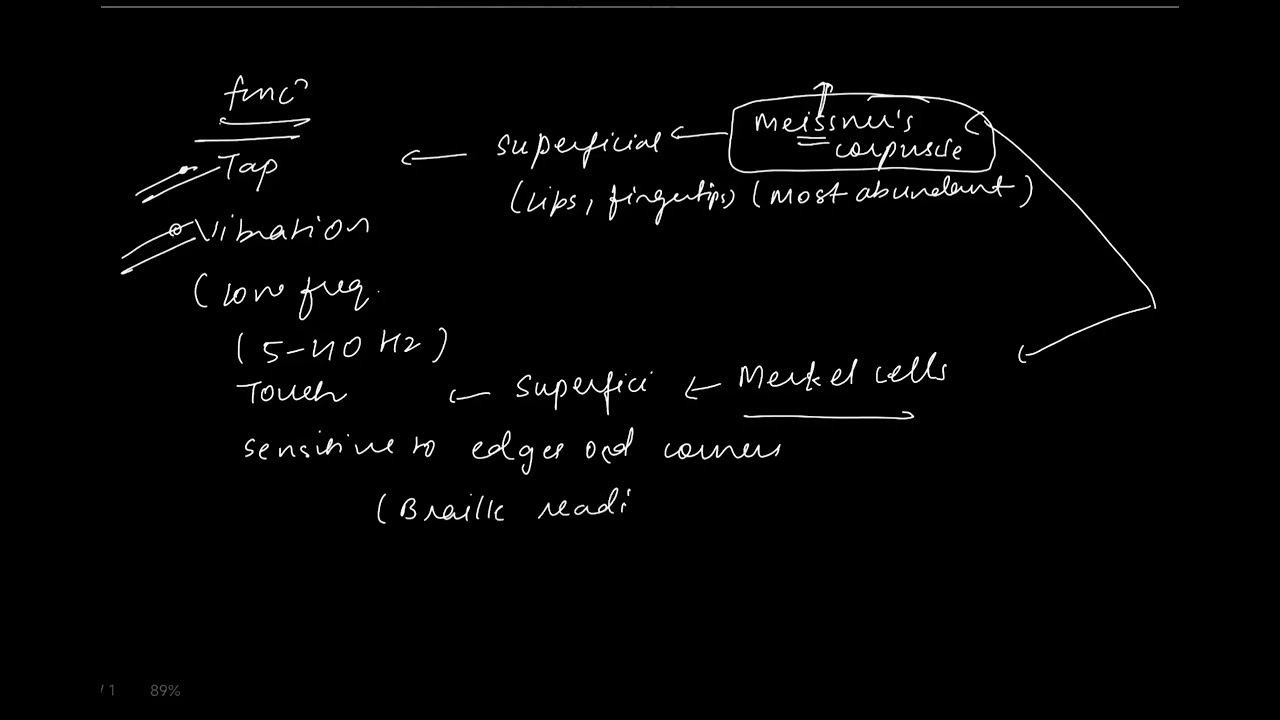 func^n
Tap ← superficial ← Meissner's corpuscle
(lips, fingertips) (most abundant)
Vibration
(low freq.
(5-40 Hz)
Touch ← superfici ← Merkel cells
sensitive to edges and corners
(Braille readi
/ 1 89%